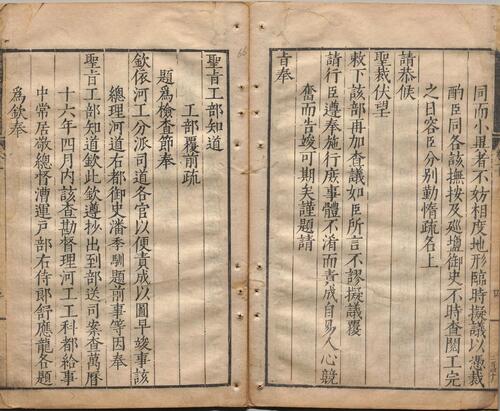 同而小異者不妨相度地形臨時擬議以憑裁
酌臣同各該撫按及巡鹽御史不時查閱工完
之日容臣分别勤惰疏名上
請恭候
聖裁伏望
敕下該部再加查議如臣所言不謬擬議覆
請行臣遵奉施行庶事體不淆而責成自易人心競
奮而告竣可期矣謹題請
旨奉
聖旨工部知道
工部覆前疏
題為檢查節奉
欽依河工分派司道各官以便責成以圖早竣事該
總理河道右都御史潘季馴題前事等因奉
聖旨工部知道欽此欽遵抄出到部送司案查萬曆
十六年四月内該查勘督理河工工科都給事
中常居敬總督漕運戶部右侍郎舒應龍各題
為欽奉
66